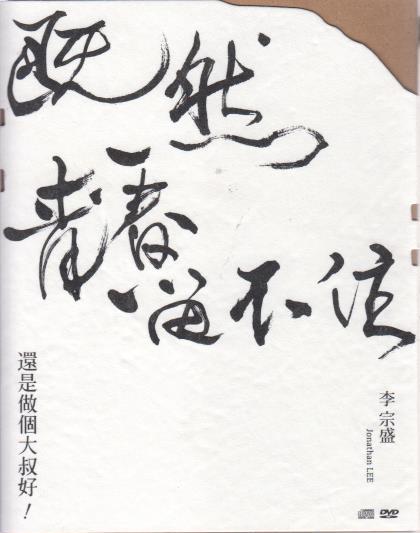 既然
青春
留不住
還是做個大叔好！
李宗盛
Jonathan LEE
DVD